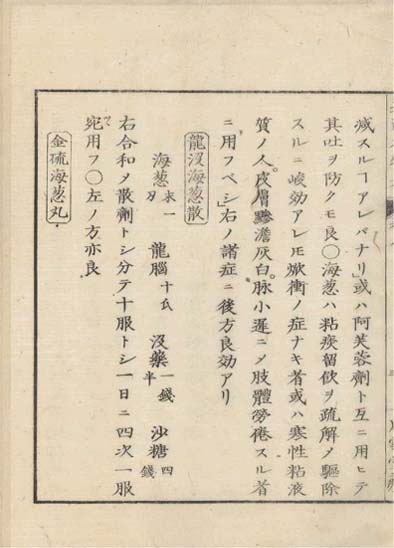 減スルヿアレバナリ」或ハ阿芙蓉劑ト互ニ用ヒテ
其吐ヲ防クモ良〇海葱ハ粘痰留飲ヲ疏解メ驅除
スルニ峻効アレ𪜈焮衝ノ症ナキ者或ハ寒性粘液
質ノ人。皮膚黲澹灰白。脉小遲ニメ肢體勞倦スル者
ニ用フベシ」右ノ諸症ニ後方良効アリ
龍没海葱散
海葱 末一刄 龍腦 十氐 没藥 一錢半 沙糖 四錢
右合和メ散劑トシ分テ十服トシ一日ニ四次一服
ヲ用フ〇左ノ方亦良
金硫海葱丸